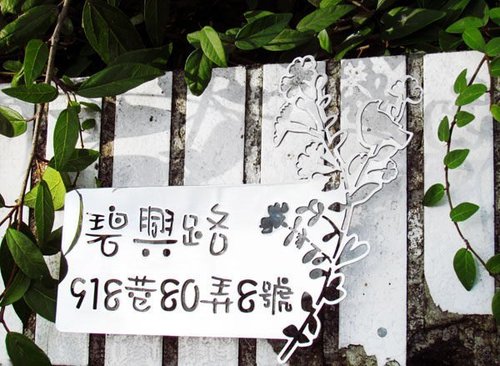 碧興路
513巷30弄3號